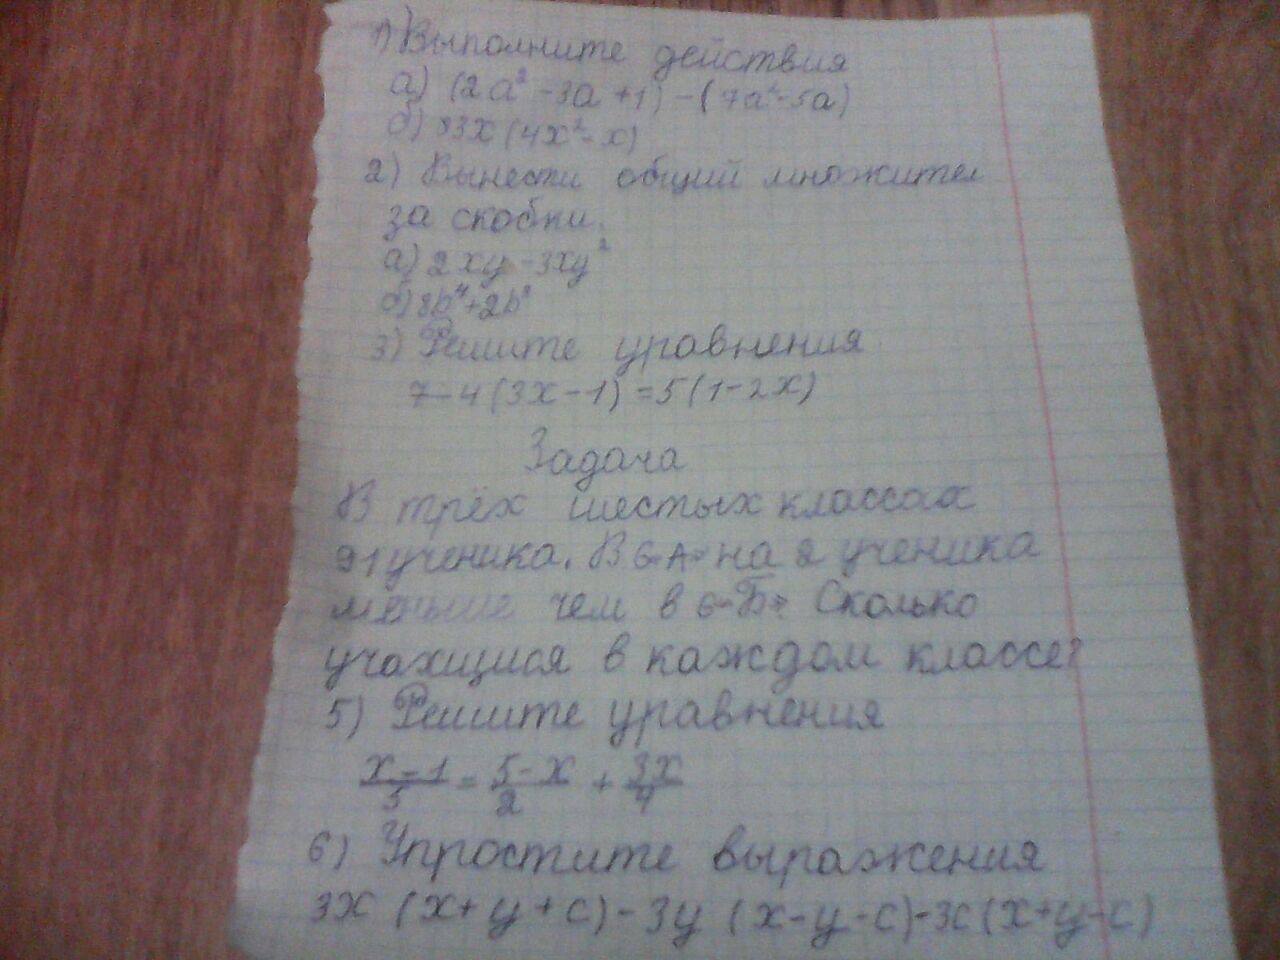 1) Выполните действия
а) (2a² -3a +1) - (7a²-5a)
б) 3x (4x²- x)
2) Вынести общий множител
за скобки.
а) 2xy -3xy²
б) 8b⁴+2b³
3) Решите уравнения
7-4(3x-1)=5(1-2x)
Задача
В трёх шестых классах
91 ученика. В 6«А» на 2 ученика
меньше чем в 6«Б». Сколько
учахщися в каждом классе?
5) Решите уравнения
x-1/5 = 5-x/2 + 3x/4
6) Упростите выражения
3x (x+y+c)-3y (x-y-c)-3c(x+y-c)